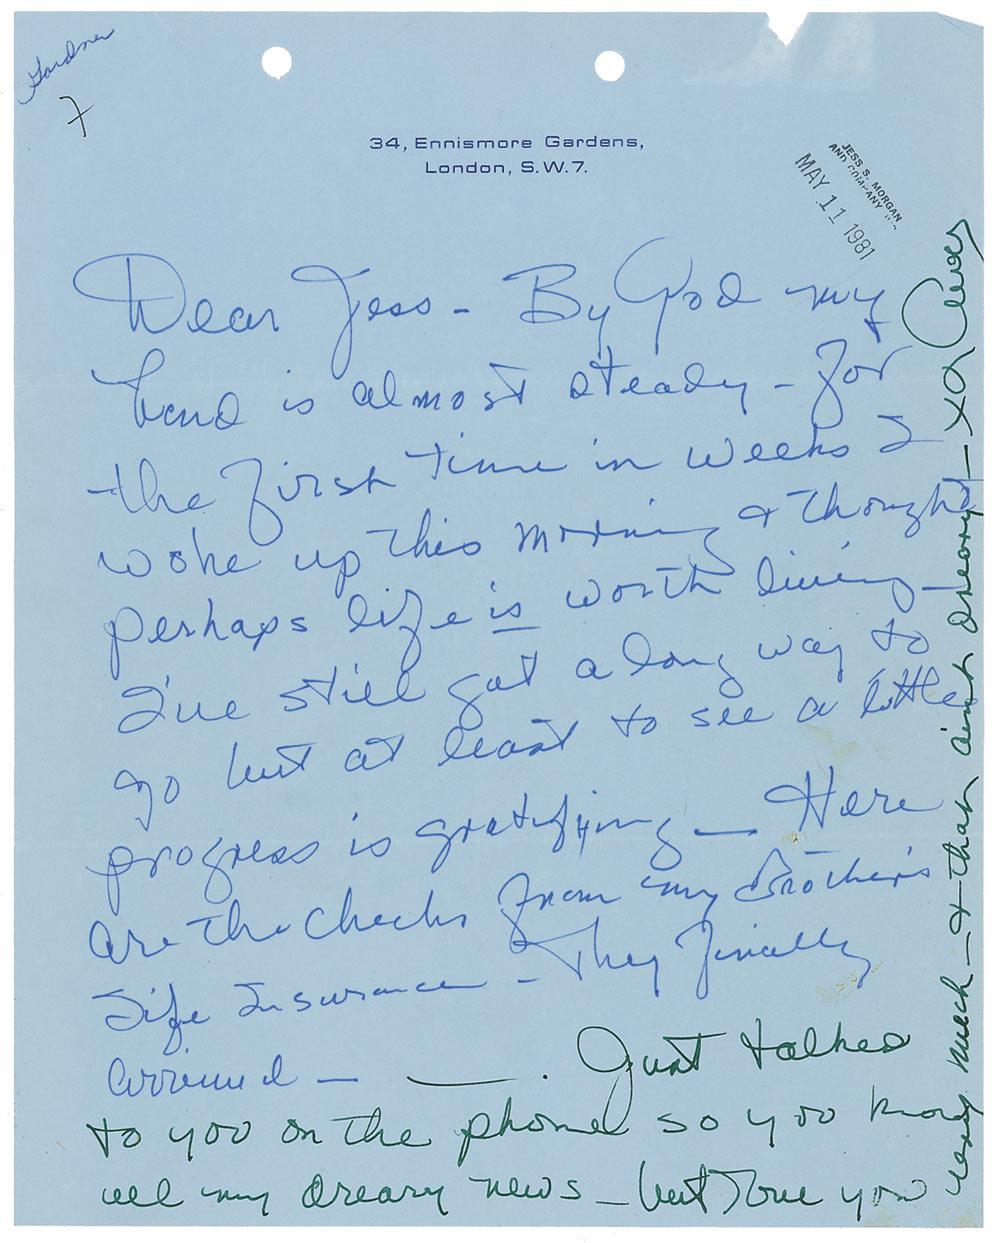 Gardner
7
34, Ennismore Gardens,
London, S.W.7.
JESS S. MORGAN
AND COMPANY
MAY 11 1981
Dear Jess - By God my
hand is almost steady - for
the first time in weeks I
woke up this morning & thought
perhaps life is worth living -
I've still got a long way to
go but at least to see a little
progress is gratifying — Here
are the checks from my Brother's
Life Insurance - They finally
arrived — — . Just talked
to you on the phone so you know
all my dreary news - but I love you
very much - & that ain't dreary - XO